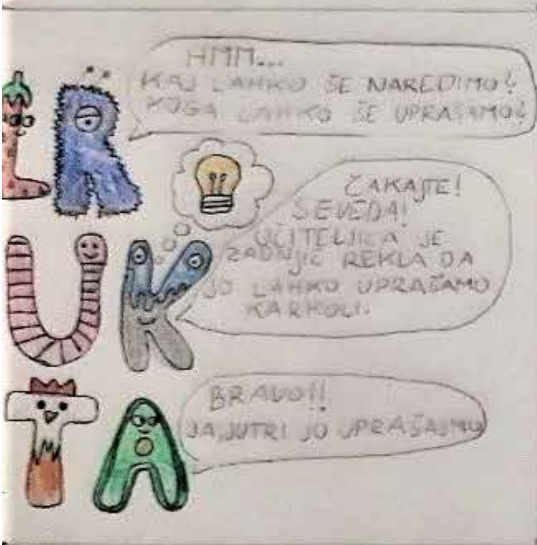 HMM...
KAJ LAHKO ŠE NAREDIMO?
KOGA LAHKO ŠE UPRAŠAMO?
ČAKAJTE!
SEVEDA!
UČITELJICA JE
ZADNJIČ REKLA DA
JO LAHKO UPRAŠAMO
KARKOLI.
BRAVO!!
JA, JUTRI JO UPRAŠAJMO
L R
U K
T A